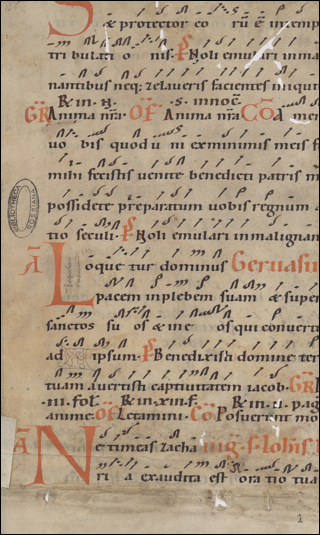 S æ protector eo rū ē in temp
tri bulati o nis. P͞S Noli emulari in ma
nantibus neq; zelaveris facientes iniquit
GR Anima nr̄a. OF Anima nr̄a CŌ A men
uo bis quod u ni ex minimis meis f
mihi fecistis uenite benedicti patris m
possidete preparatum uobis regnum
tio seculi. P͞S Noli emulari in malignan
A Loque tur dominus Geruasii
pacem in plebem suam & super
sanctos su os & in e os qui conuert
ad ipsum. P͞S Benedixisti domine ter
tuam auertisti captiuitatem iacob. GR
anime OF Letamini. CŌ Posuerunt mor
A Ne timeas Zacha
ri a exaudita est ora tio tua
1